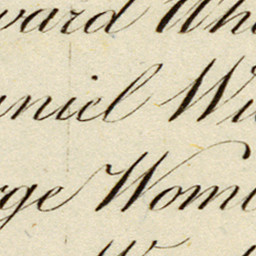 ward Wh
aniel Wi
rge Wom